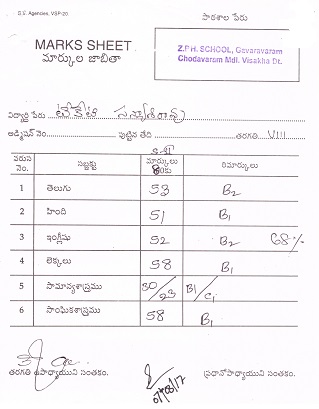 S.V. Agencies, VSP-20.
పాఠశాల పేరు
MARKS SHEET
మార్కుల జాబితా
Z.P.H. SCHOOL, Gavaravaram
Chodavaram Mdl. Visakha Dt.
విద్యార్థి పేరు
అడ్మిషన్ నెం. పుట్టిన తేది తరగతి VIII
వరుస నెం. సబ్జెక్టు మార్కులు 80కు రిమార్కులు
1 తెలుగు 53 B2
2 హింది 51 B1
3 ఇంగ్లీషు 52 B2 68%
4 లెక్కలు 58 B1
5 సామాన్యశాస్త్రము 30/23 B1/C1
6 సాంఘికశాస్త్రము 58 B1
తరగతి ఉపాధ్యాయుని సంతకం. ప్రధానోపాధ్యాయుని సంతకం.